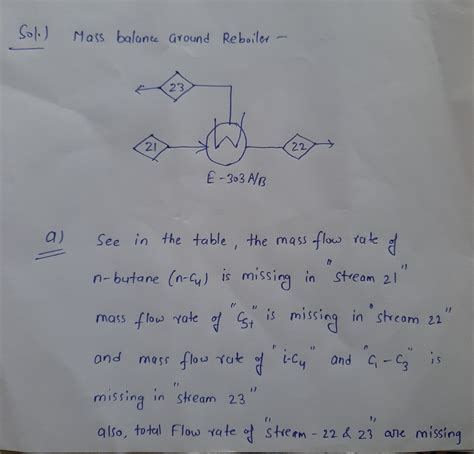 Sol.) Mass balance around Reboiler -
23
21
22
E-303 A/B
a) See in the table, the mass flow rate of
n-butane (n-C4) is missing in "stream 21"
mass flow rate of "C5+" is missing in "stream 22"
and mass flow rate of "i-C4" and "C1 - C3" is
missing in "stream 23"
also, total Flow rate of "stream - 22 & 23" are missing